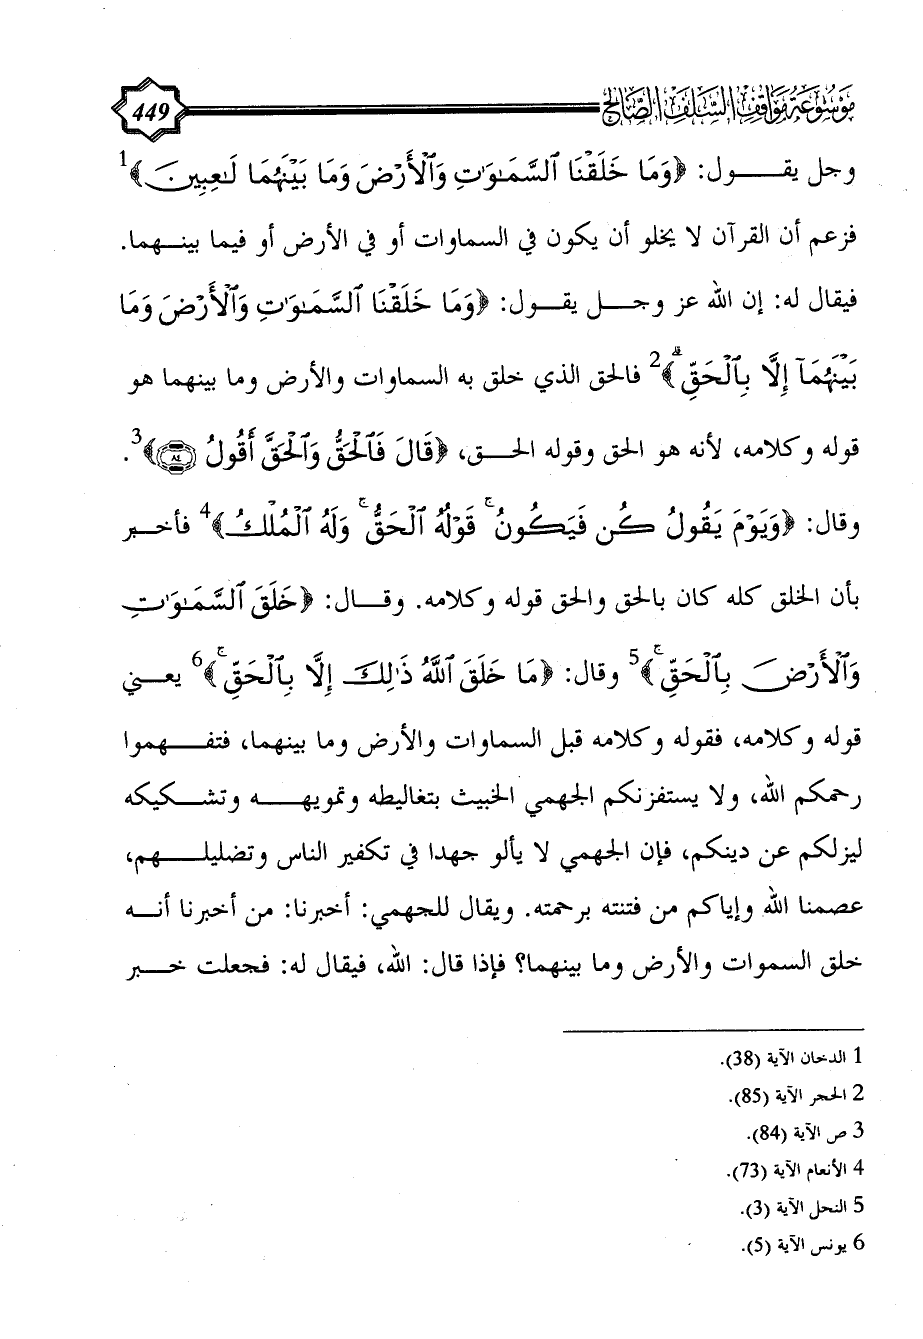 موسوعة مواقف السلف الصالح
449
وجل يقـــــول: ﴿وَمَا خَلَقْنَا ٱلسَّمَـٰوَٰتِ وَٱلْأَرْضَ وَمَا بَيْنَهُمَا لَـٰعِبِينَ﴾1
فزعم أن القرآن لا يخلو أن يكون في السماوات أو في الأرض أو فيما بينـــهما.
فيقال له: إن الله عز وجـــل يقـــول: ﴿وَمَا خَلَقْنَا ٱلسَّمَـٰوَٰتِ وَٱلْأَرْضَ وَمَا
بَيْنَهُمَآ إِلَّا بِٱلْحَقِّ ۗ﴾2 فالحق الذي خلق به السماوات والأرض وما بينهما هو
قوله وكلامه، لأنه هو الحق وقوله الحـــق، ﴿قَالَ فَٱلْحَقُّ وَٱلْحَقَّ أَقُولُ ٨٤﴾3.
وقال: ﴿وَيَوْمَ يَقُولُ كُن فَيَكُونُ ۚ قَوْلُهُ ٱلْحَقُّ ۚ وَلَهُ ٱلْمُلْكُ﴾4 فأخـــبر
بأن الخلق كله كان بالحق والحق قوله وكلامه. وقـــال: ﴿خَلَقَ ٱلسَّمَـٰوَٰتِ
وَٱلْأَرْضَ بِٱلْحَقِّ ۚ﴾5 وقال: ﴿مَا خَلَقَ ٱللَّهُ ذَٰلِكَ إِلَّا بِٱلْحَقِّ ۚ﴾6 يعـــني
قوله وكلامه، فقوله وكلامه قبل السماوات والأرض وما بينهما، فتفـــهموا
رحمكم الله، ولا يستفزنكم الجهمي الخبيث بتغاليطه وتمويهـــه وتشـــكيكه
ليزلكم عن دينكم، فإن الجهمي لا يألو جهدا في تكفير الناس وتضليلـــهم،
عصمنا الله وإياكم من فتنته برحمته. ويقال للجهمي: أخبرنا: من أخبرنا أنـــه
خلق السموات والأرض وما بينهما؟ فإذا قال: الله، فيقال له: فجعلت خـــبر
1 الدخان الآية (38).
2 الحجر الآية (85).
3 ص الآية (84).
4 الأنعام الآية (73).
5 النحل الآية (3).
6 يونس الآية (5).